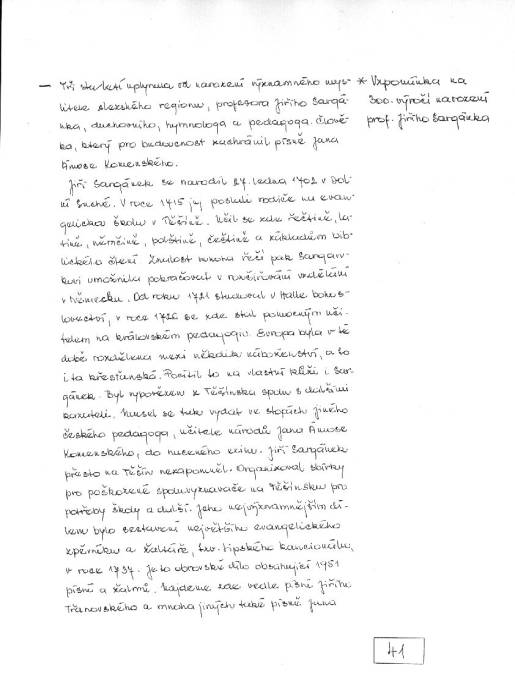 — Tři staletí uplynula od narození významného mys-
litele slezského regionu, profesora Jiřího Sargá-
nka, duchovního, hymnologa a pedagoga. Člově-
ka, který pro budoucnost zachránil písně Jana
Ámose Komenského.
Jiří Sargánek se narodil 27. ledna 1702 v Dol-
ní Suché. V roce 1715 jej poslali rodiče na evan-
gelickou školu v Těšíně. Učil se zde řečtině, la-
tině, němčině, polštině, češtině a základům bib-
lického čtení. Znalost mnoha řečí pak Sargan-
kovi umožnila pokračovat v rozšiřování vzdělání
v Německu. Od roku 1721 studoval v Halle bohos-
lovectví, v roce 1726 se zde stal pomocným uči-
telem na královském pedagogiu. Evropa byla v té
době rozdělena mezi několik náboženství, a to
i ta křesťanská. Pocítil to na vlastní kůži i Sar-
gánek. Byl vypovězen z Těšínska spolu s dalšími
kazateli. Musel se tak vydat ve stopách jiného
českého pedagoga, učitele národů Jana Ámose
Komenského, do nuceného exilu. Jiří Sargánek
přesto na Těšín nezapomněl. Organizoval sbírky
pro poškozené spoluvyznavače na Těšínsku pro
potřeby školy a další. Jeho nejvýznamnějším dí-
lem bylo sestavení největšího evangelického
zpěvníku a žaltáře, tzv. Lipského kancionálu,
v roce 1737. Je to obrovské dílo obsahující 1951
písní a žalmů. Najdeme zde vedle písní Jiřího
Třanovského a mnoha jiných také písně Jana
* Vzpomínka na
300. výročí narození
prof. Jiřího Sargánka
41